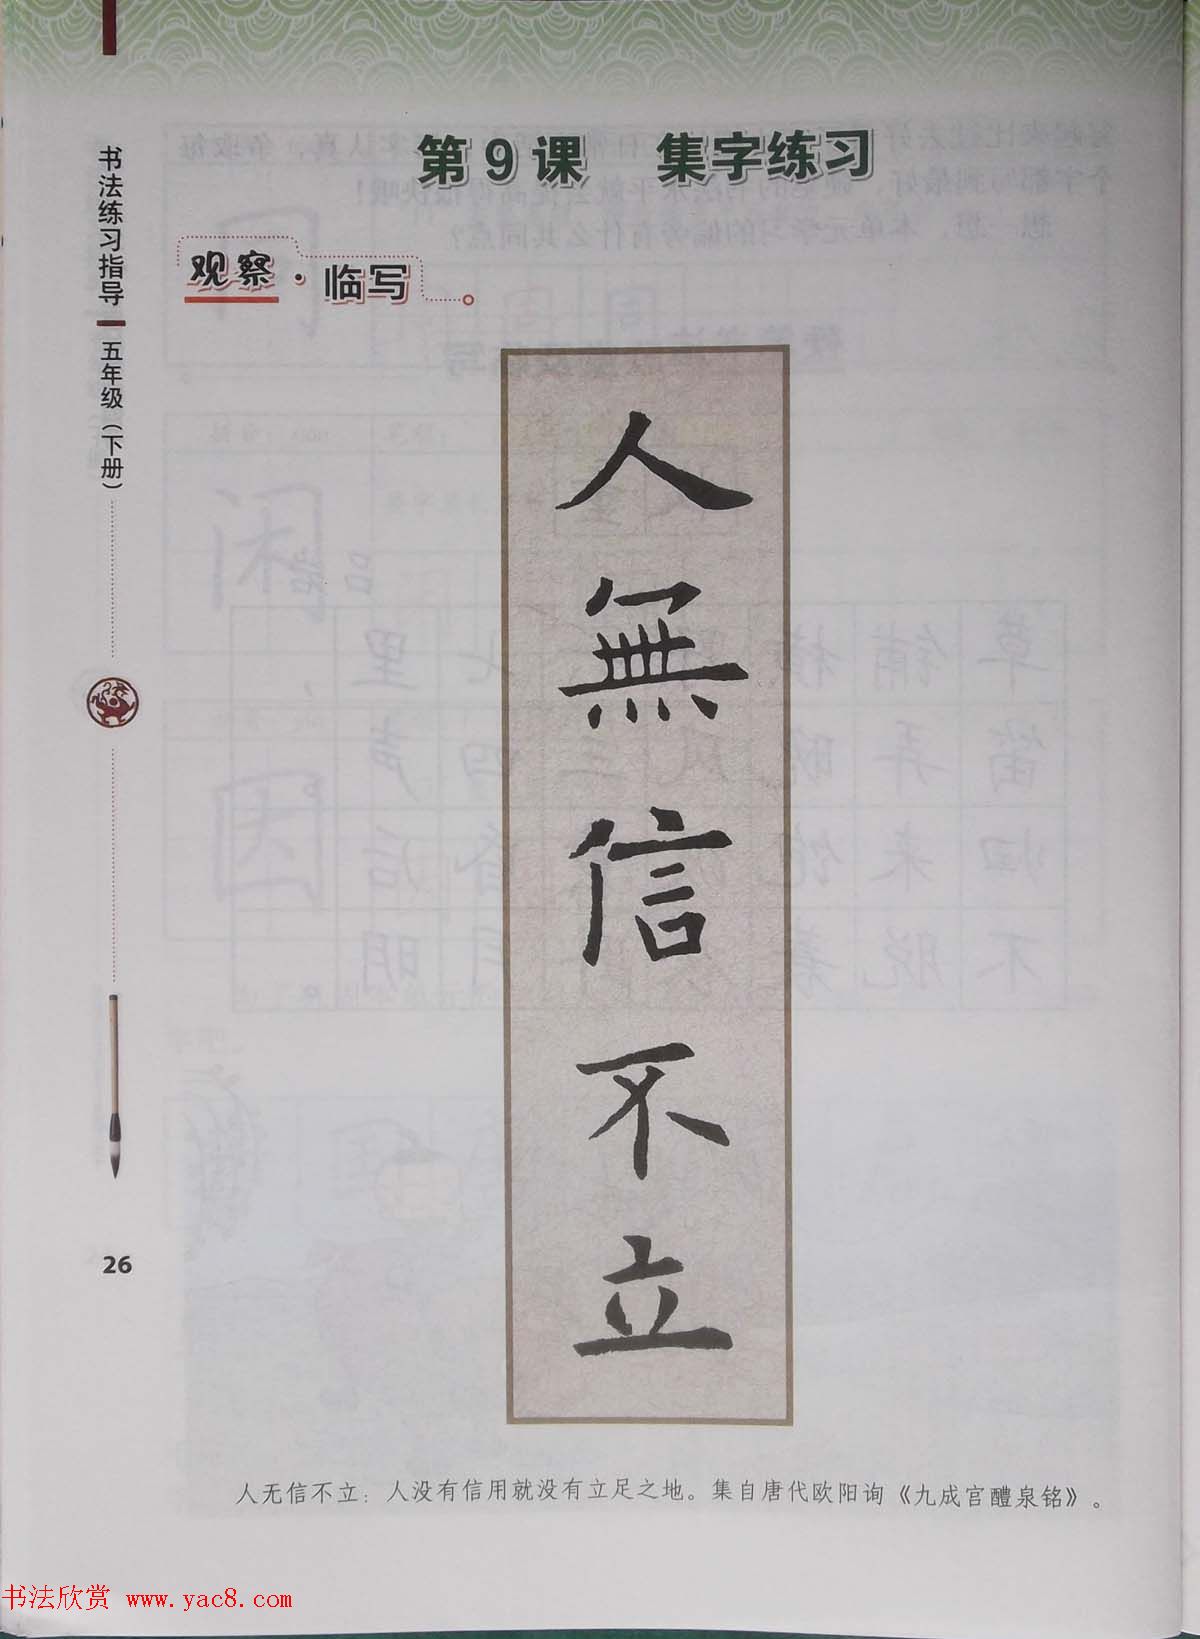 第9课 集字练习
观察·临写
书法练习指导 五年级（下册）
人無信不立
26
人无信不立：人没有信用就没有立足之地。集自唐代欧阳询《九成宫醴泉铭》。
书法欣赏 www.yac8.com